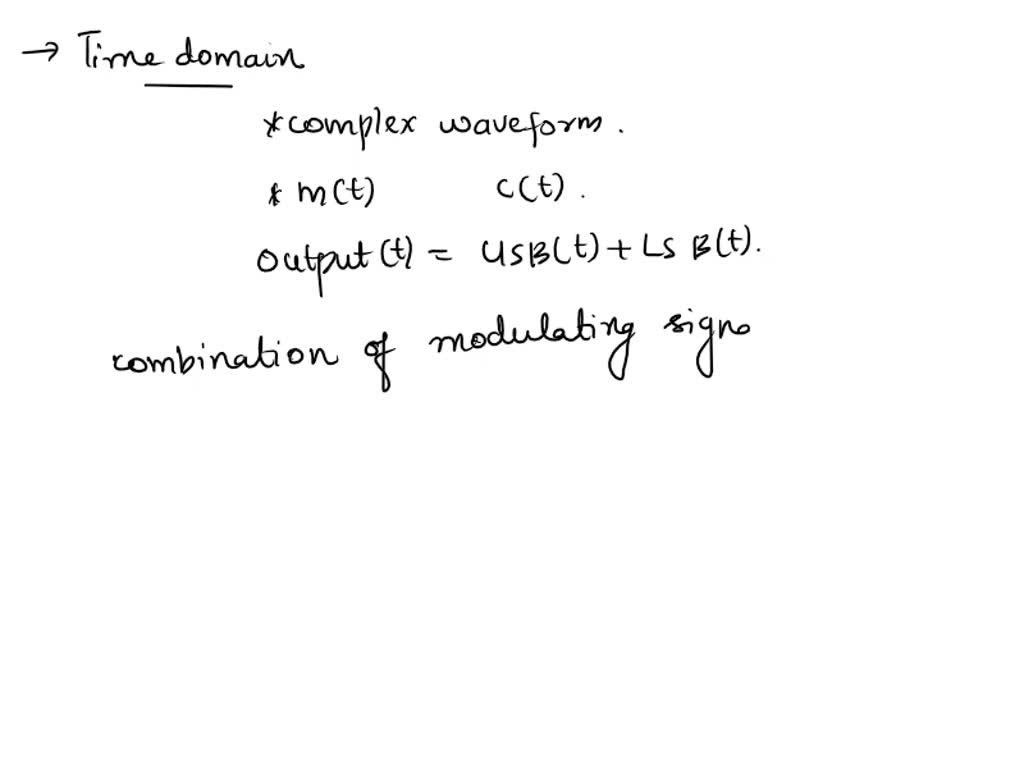 → Time domain
* complex waveform.
* m(t) c(t).
output(t) = USB(t) + LSB(t).
combination of modulating signa